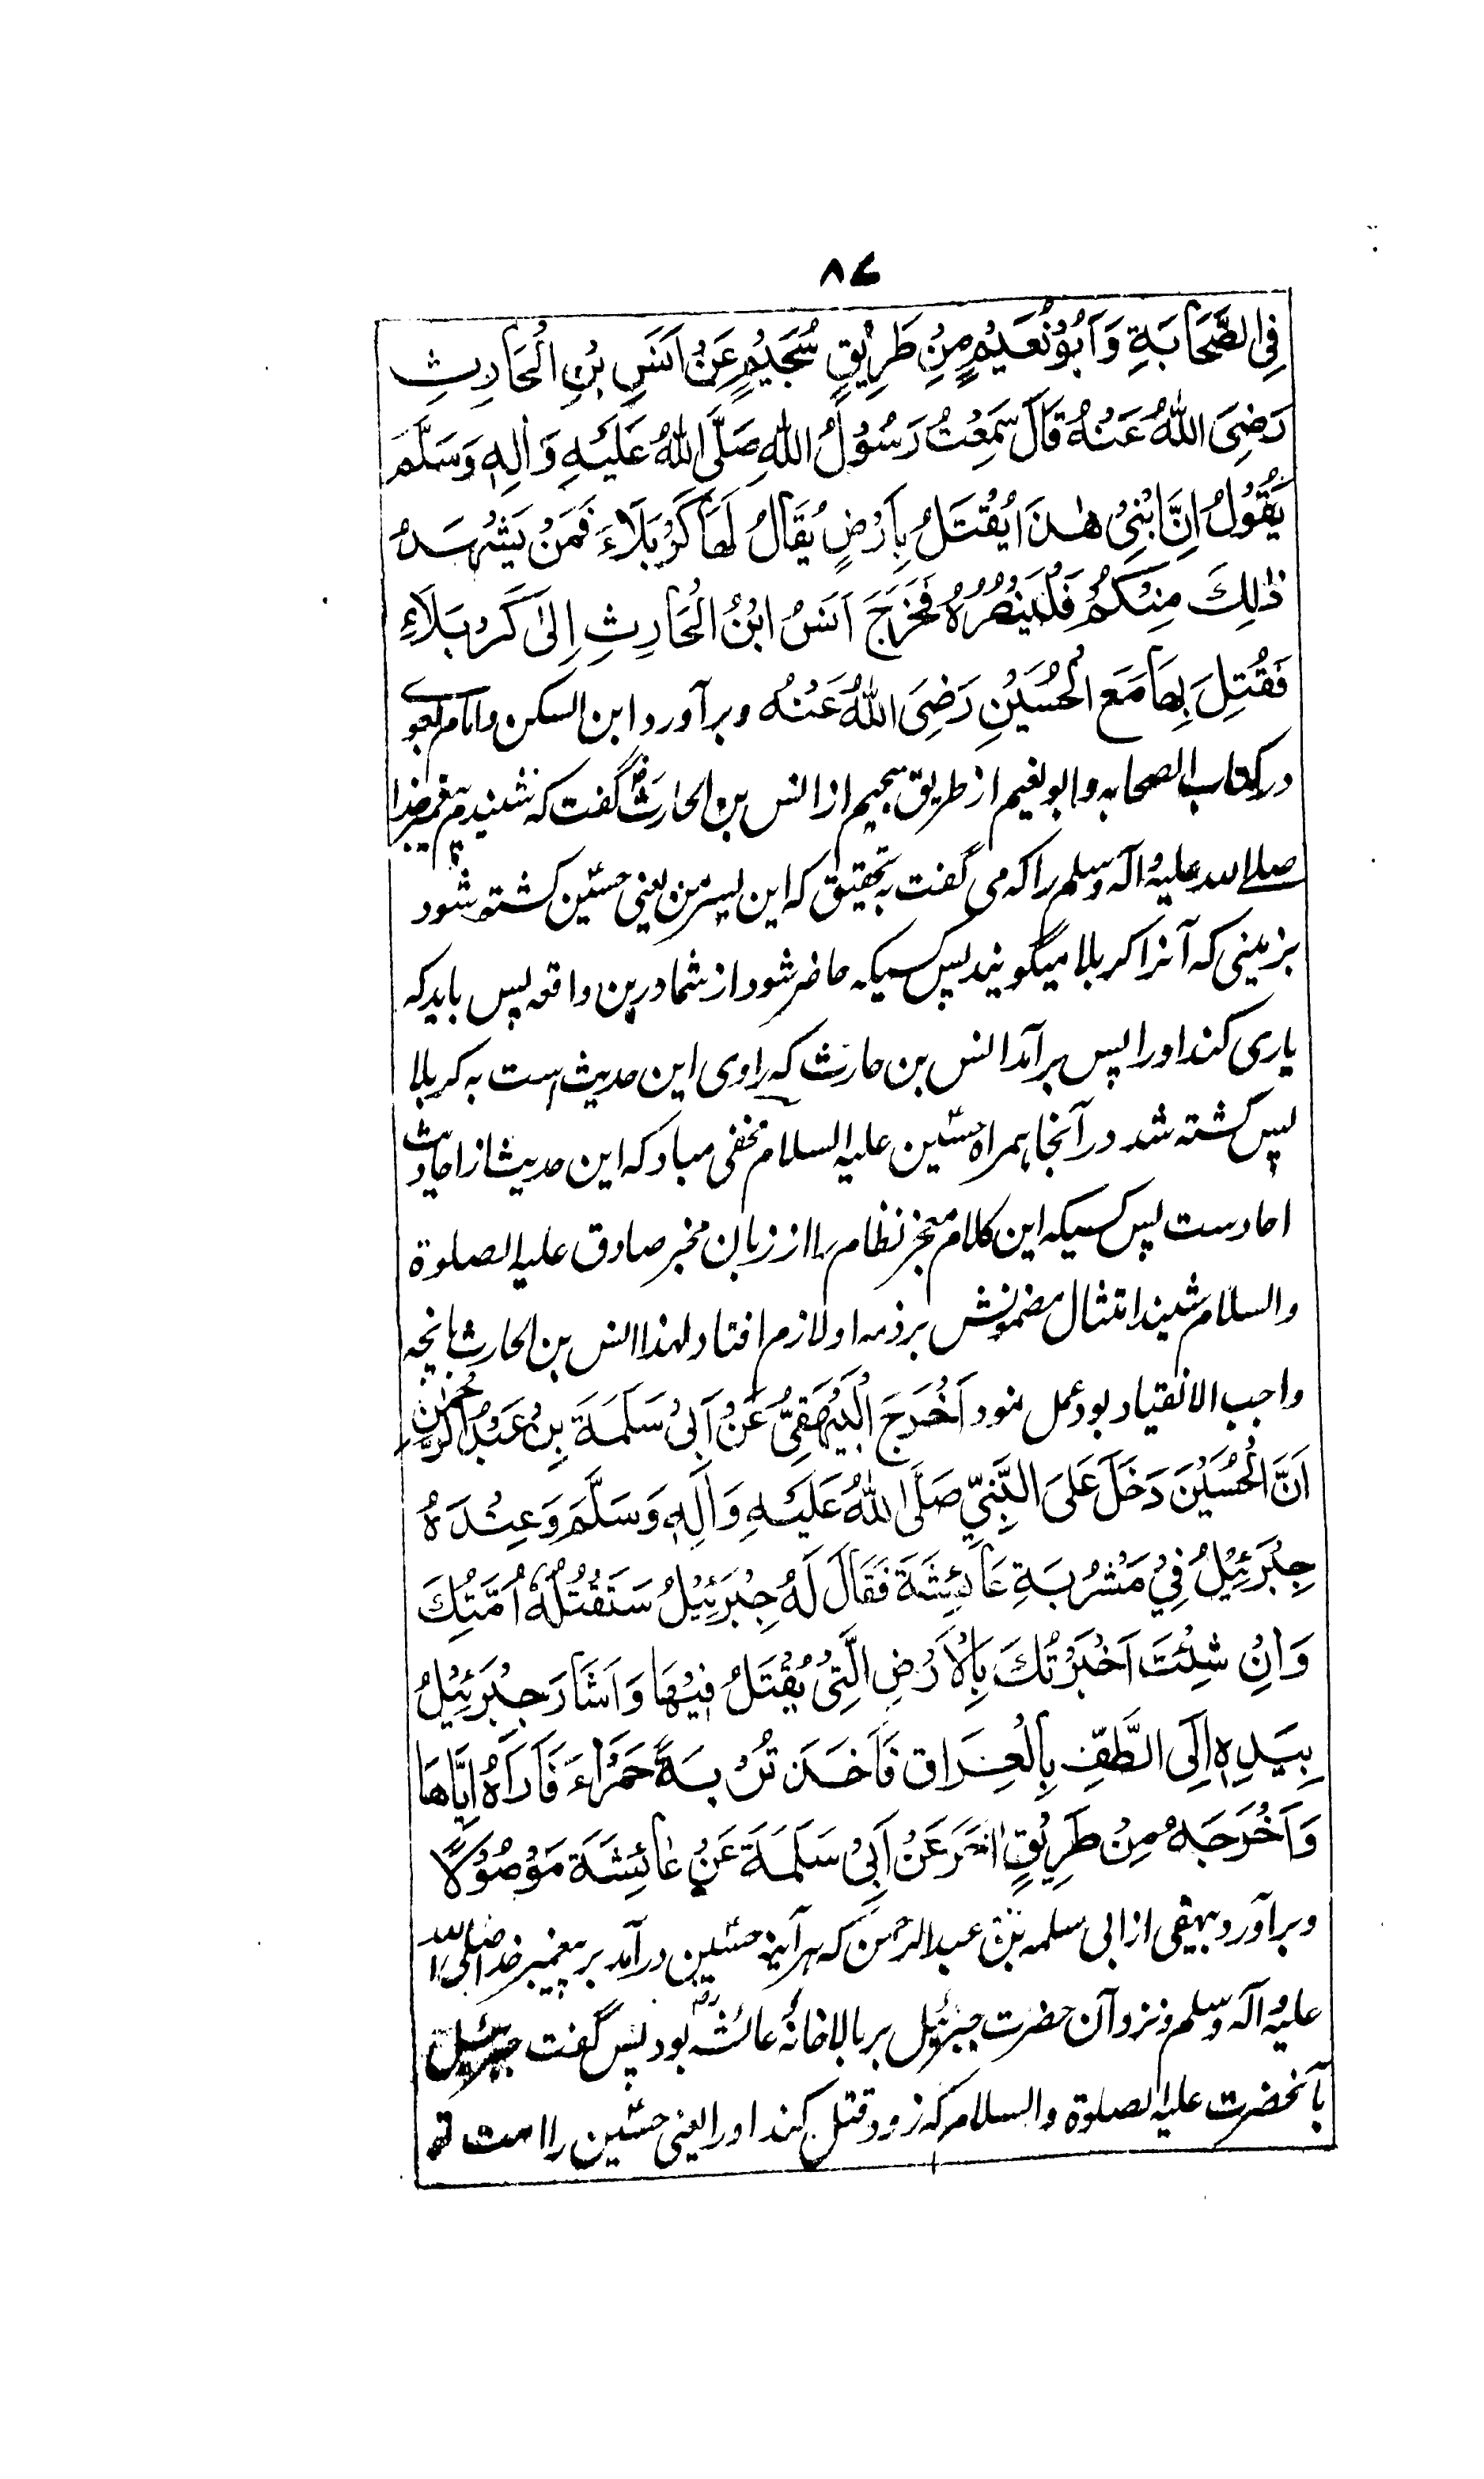 ۸۷
فِي الصَّحَابَةِ وَاَبُوْنُعَيْمٍ مِنْ طَرِيْقٍ سُجَيْمٍ عَنْ اَنَسِ بْنِ الْحَارِثِ
رَضِيَ اللّٰهُ عَنْهُ قَالَ سَمِعْتُ رَسُوْلُ اللّٰهِ صَلَّى اللّٰهُ عَلَيْهِ وَاٰلِهٖ وَسَلَّمَ
يَقُوْلُ اِنَّ ابْنِيْ هٰذَا يُقْتَلُ بِاَرْضٍ يُقَالُ لَهَا كَرْبَلَاءَ فَمَنْ يَشْهَدُ
ذٰلِكَ مِنْكُمْ فَلْيَنْصُرْهُ فَخَرَجَ اَنَسُ ابْنُ الْحَارِثِ اِلىٰ كَرْبَلَاءِ
فَقُتِلَ بِهَا مَعَ الْحُسَيْنِ رَضِيَ اللّٰهُ عَنْهُ وبرآورد ابن السكن وامام لغوے
در کتاب الصحابہ وابونعیم از طریق سجیم از انس بن الحارث رض گفت کہ شنیدم پیغمبر خدا
صلے اللہ علیہ وآلہ وسلم را کہ می گفت بہ تحقیق کہ این پسر من یعنی حسینؑ کشتہ شود
بزمینی کہ آنرا کربلا میگویند پس کسیکہ حاضر شود از شما درین واقعہ پس باید کہ
یاری کند اورا پس برآمد انس بن حارث کہ راوی این حدیث است بہ کربلا
پس کشتہ شد در آنجا ہمراہ حسینؑ علیہ السلام مخفی مباد کہ این حدیث از احادیث
احادست پس کسیکہ این کلام معجز نظام را از زبان مخبر صادق علیہ الصلوۃ
والسلام شنید امتثال مضمونش بر ذمہ او لازم افتاد لہذا انس بن الحارث بانچہ
واجب الانقیاد بود عمل نمود اَخْرَجَ الْبَيْهَقِيُّ عَنْ اَبِيْ سَلَمَةَ بِنْ عَبْدُ الرَّحْمٰنِ
اَنَّ الْحُسَيْنَ دَخَلَ عَلَى النَّبِيِّ صَلَّى اللّٰهُ عَلَيْهِ وَاٰلِهٖ وَسَلَّمَ وَعِنْدَهُ
جِبْرَئِيْلُ فِيْ مَشْرُبَةِ عَائِشَةَ فَقَالَ لَهُ جِبْرَئِيْلُ سَتَقْتُلُهٗ اُمَّتُكَ
وَاِنْ شِئْتَ اَخْبَرْتُكَ بِالْاَرْضِ الَّتِيْ يُقْتَلُ فِيْهَا وَاَشَارَ جِبْرَئِيْلُ
بِيَدِهٖ اِلَى الطَّفِّ بِالْعِرَاق فَاَخَذَ تُرْبَةً حَمْرَاءَ فَاَرَاهُ اِيَّاهَا
وَاَخْرَجَهُ مِنْ طَرِيْقٍ اٰخَرَ عَنْ اَبِيْ سَلَمَةَ عَنْ عَائِشَةَ مَوْصُوْلًا
وبرآورد بیہقی از ابی سلمہ بن عبدالرحمن کہ ہرآینہ حسینؑ درآمد بر پیغمبر خدا صلی اللہ
علیہ وآلہ وسلم ونزد آن حضرت جبرئیل بر بالاخانۂ عائشہ رض بود پس گفت جبرئیل
بآنحضرت علیہ الصلوۃ والسلام کہ زود قتل کند اورا یعنی حسینؑ را امت تو